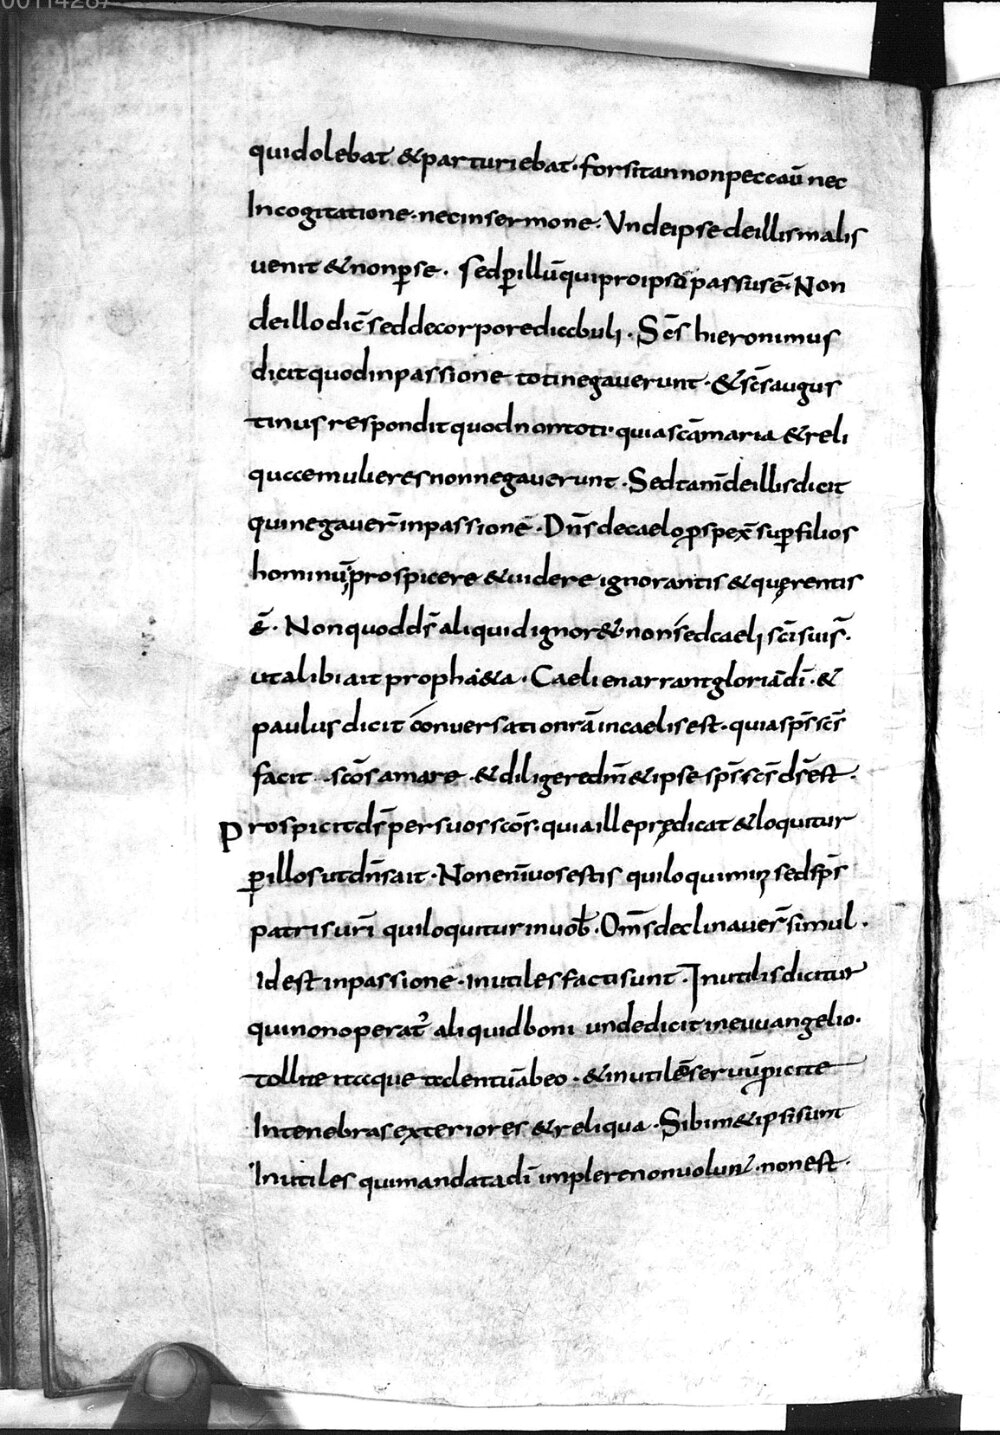 00114287
quidolebat &parturiebat. forsitannonpeccaū nec
Incogitatione. necinsermone. Undeipsedeillismalis
uenit &nonp̱se. sedp̱illūquiproipsopassusē. Non
deillodic̄seddecorporediabuli. Sc̄s hieronimus
dicitquodinpassione totinegauerunt. &sc̄saugus
tinusresponditquodnontoti. quiascāmaria &reli
quaemulieresnonnegauerunt. Sedtam̄deillisdicit
quinegauer̄inpassione. Dn̄sdecaelop̱spex̄sup̱filios
hominū prospicere &uidere ignorantis &quęrentis
ē. Nonquodds̄aliquidignor&non sedcaeli sc̄isuis̄.
utalibiait proph&a. Caelienarrantgloriādī. &
paulusdicit conuersationrāincaelisest. quiasps̄sc̄s
facit scōsamare. &diligeredm̄&ipse sps̄sc̄sds̄est.
Prospicitds̄persuosscōs. quiailleprędicat&loquitur
p̱illosutdn̄sait. Nonenīuosestis quiloquiminꝫ sedsps̄
patrisurī quiloquiturinuob̄. Om̄sdeclinauer̄simul.
Idestinpassione. inutilesfactisunt. Inutilisdicitur
quinonoperat᷒ aliquidboni undedicitineuuangelio.
tollite itaque talentūabeo. &inutilēseruūp̱icite
Intenebrasexteriores &reliqua. Sibim&ipsisunt
Inutiles quimandatadī implerenonuolun᷒. nonest.